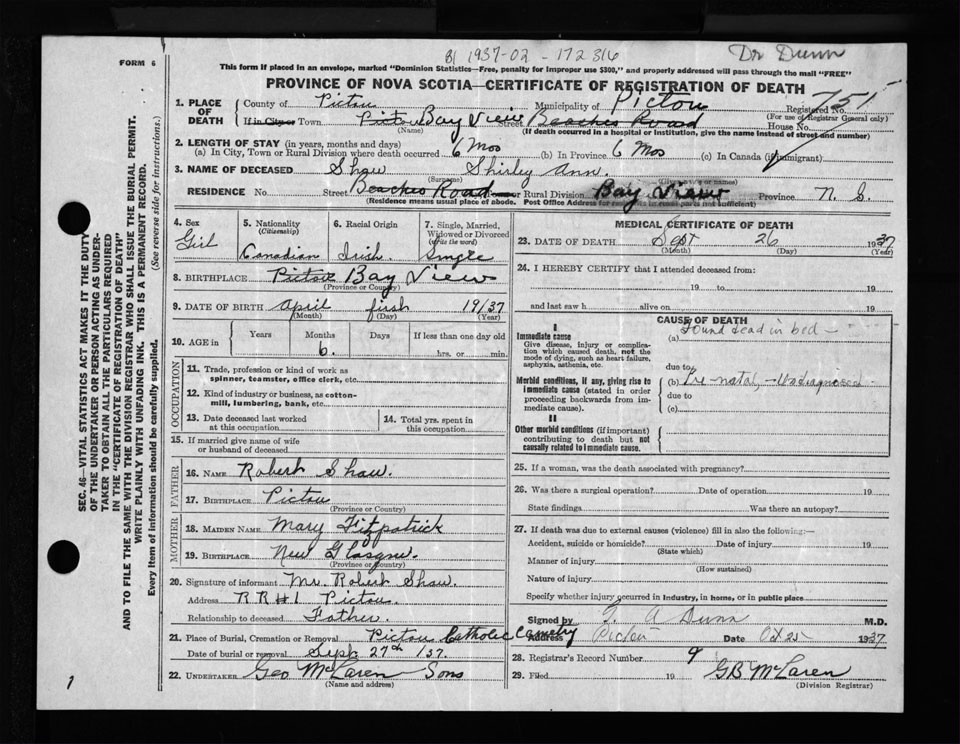 1937-02-172316
Dr Dunn
FORM 6
This form if placed in an envelope, marked "Dominion Statistics—Free, penalty for improper use $300," and properly addressed will pass through the mail "FREE"
PROVINCE OF NOVA SCOTIA—CERTIFICATE OF REGISTRATION OF DEATH
1. PLACE OF DEATH County of Pictou Municipality of Pictou Registered No. 755
(For use of Registrar General only)
If in City or Town Pictou Bay View Street Beaches Road House No.
(Name) (If death occurred in a hospital or institution, give the name instead of street and number)
2. LENGTH OF STAY (in years, months and days)
(a) In City, Town or Rural Division where death occurred 6 Mos (b) In Province 6 Mos (c) In Canada (if immigrant)
3. NAME OF DECEASED Shaw Shirley Ann.
(Surname) (Given name or names)
RESIDENCE No. Street Beaches Road or Rural Division Bay View Province N. S.
(Residence means usual place of abode. Post Office Address for residents in rural parts not sufficient)
4. Sex Girl
5. Nationality (Citizenship) Canadian
6. Racial Origin Irish.
7. Single, Married, Widowed or Divorced (Write the word) Single
8. BIRTHPLACE Pictou Bay View
(Province or Country)
9. DATE OF BIRTH April first 1937
(Month) (Day) (Year)
10. AGE in Years Months 6. Days If less than one day old hrs. or min.
OCCUPATION
11. Trade, profession or kind of work as spinner, teamster, office clerk, etc.
12. Kind of industry or business, as cotton-mill, lumbering, bank, etc.
13. Date deceased last worked at this occupation
14. Total yrs. spent in this occupation
15. If married give name of wife or husband of deceased
FATHER
16. NAME Robert Shaw.
17. BIRTHPLACE Pictou
(Province or Country)
MOTHER
18. MAIDEN NAME Mary Fitzpatrick
19. BIRTHPLACE New Glasgow.
(Province or Country)
20. Signature of informant Mr. Robert Shaw.
Address RR#1 Pictou.
Relationship to deceased Father.
21. Place of Burial, Cremation or Removal Pictou Catholic Cemetry
Date of burial or removal Sept 27th 137.
22. UNDERTAKER Geo McLaren Sons
(Name and address)
MEDICAL CERTIFICATE OF DEATH
23. DATE OF DEATH Sept 26 1937
(Month) (Day) (Year)
24. I HEREBY CERTIFY that I attended deceased from:
19 to 19
and last saw h alive on 19
CAUSE OF DEATH
I
Immediate cause
Give disease, injury or complication which caused death, not the mode of dying, such as heart failure, asphyxia, asthenia, etc.
(a) Found dead in bed —
due to
Morbid conditions, if any, giving rise to immediate cause (stated in order proceeding backwards from immediate cause).
(b) Pre-natal — Undiagnosed
due to
(c)
II
Other morbid conditions (if important) contributing to death but not causally related to immediate cause.
25. If a woman, was the death associated with pregnancy?
26. Was there a surgical operation? Date of operation 19
State findings Was there an autopsy?
27. If death was due to external causes (violence) fill in also the following:—
Accident, suicide or homicide? Date of injury 19
(State which)
Manner of injury
(How sustained)
Nature of injury
Specify whether injury occurred in industry, in home, or in public place
Signed by A Dunn M.D.
Address Pictou Date Oct 25 1937
28. Registrar's Record Number 9
29. Filed 19 GB McLaren
(Division Registrar)
SEC. 46—VITAL STATISTICS ACT MAKES IT THE DUTY
OF THE UNDERTAKER OR PERSON ACTING AS UNDER-
TAKER TO OBTAIN ALL THE PARTICULARS REQUIRED
IN THE "CERTIFICATE OF REGISTRATION OF DEATH"
AND TO FILE THE SAME WITH THE DIVISION REGISTRAR WHO SHALL ISSUE THE BURIAL PERMIT.
WRITE PLAINLY WITH UNFADING INK. THIS IS A PERMANENT RECORD.
Every item of information should be carefully supplied. (See reverse side for instructions.)
1